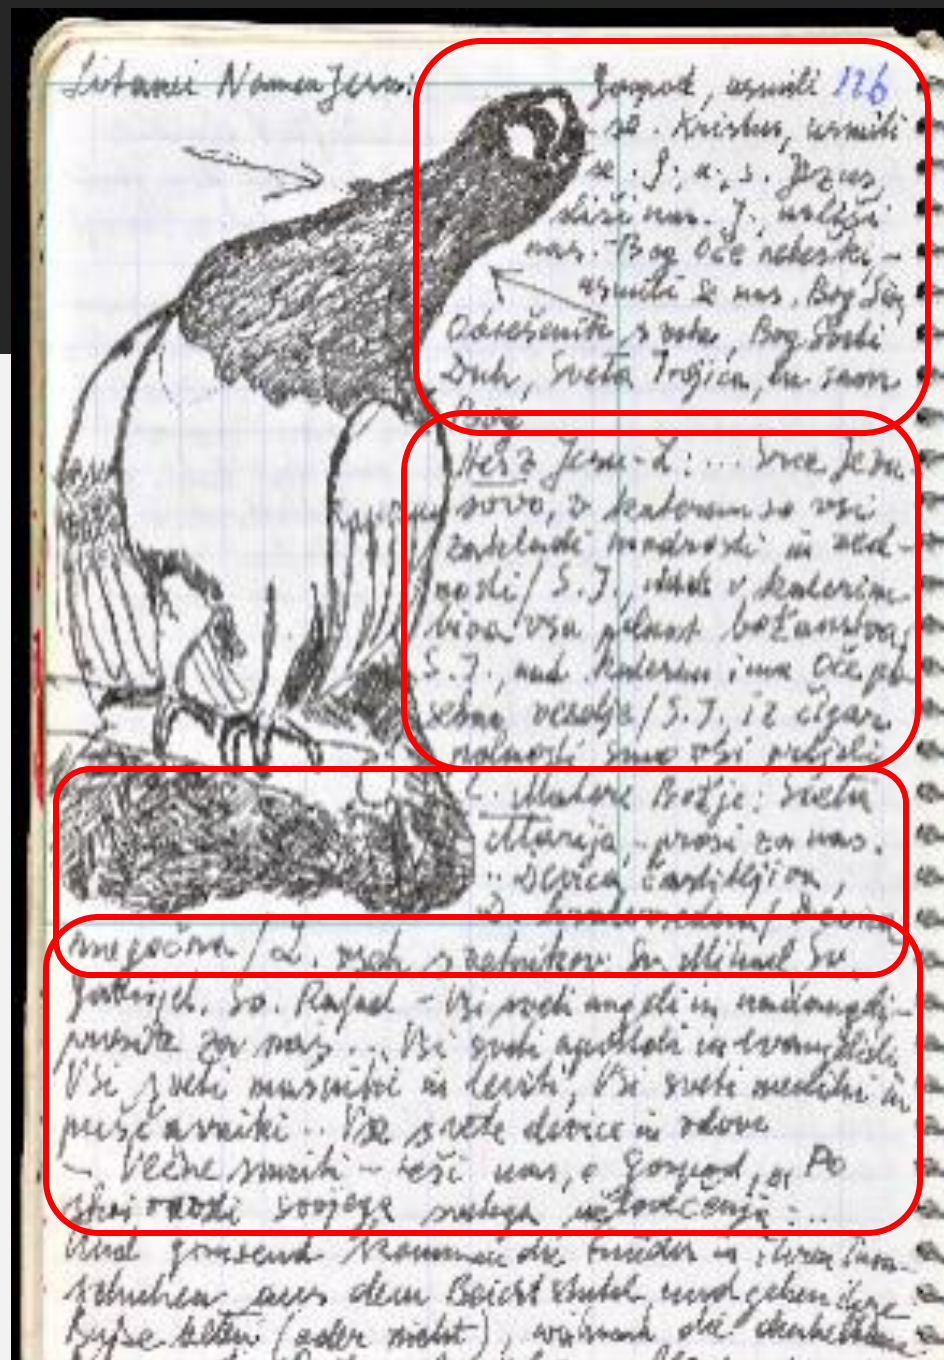 Litanei Namen Jesu:
Gospod, usmili 126
se. Kristus, usmili
se. G., u., s. Jezus,
sliši nas. J. usliši
nas. Bog Oče nebeški -
usmili se nas. Bog Sin,
Odrešenik sveta, Bog Sveti
Duh, Sveta Trojica,
Bog
Herz Jesu-L: ... Srce Jezu-
sovo, v katerem so vsi
zakladi modrosti in ved-
nosti / S. J., v katerim
biva vsa polnost božanstva,
S. J., nad katerim ima Oče po-
sebno veselje / S. J. iz čigar
polnosti smo vsi prejeli
L. Matere Božje: Sveta
Marija, - prosi za nas.
.. Devica častitljiva,
D. / Devica
mogočna / L. vseh svetnikov: Sv. Mihael Sv.
Gabrijel, Sv. Rafael - Vsi sveti angeli in nadangeli -
prosite za nas ... Vsi sveti apostoli in evangelisti
Vsi sveti mašniki in leviti, Vsi sveti menihi in
puščavniki .. Vse svete device in vdove
- Večne smrti - reši nas, o Gospod, Po
skrivnosti svojega svetega učlovečenja: ..
Und kommen die Kinder in ihren Turn-
schuhen aus dem Beichtstuhl, und gehen ihre
Buße beten (oder nicht), die